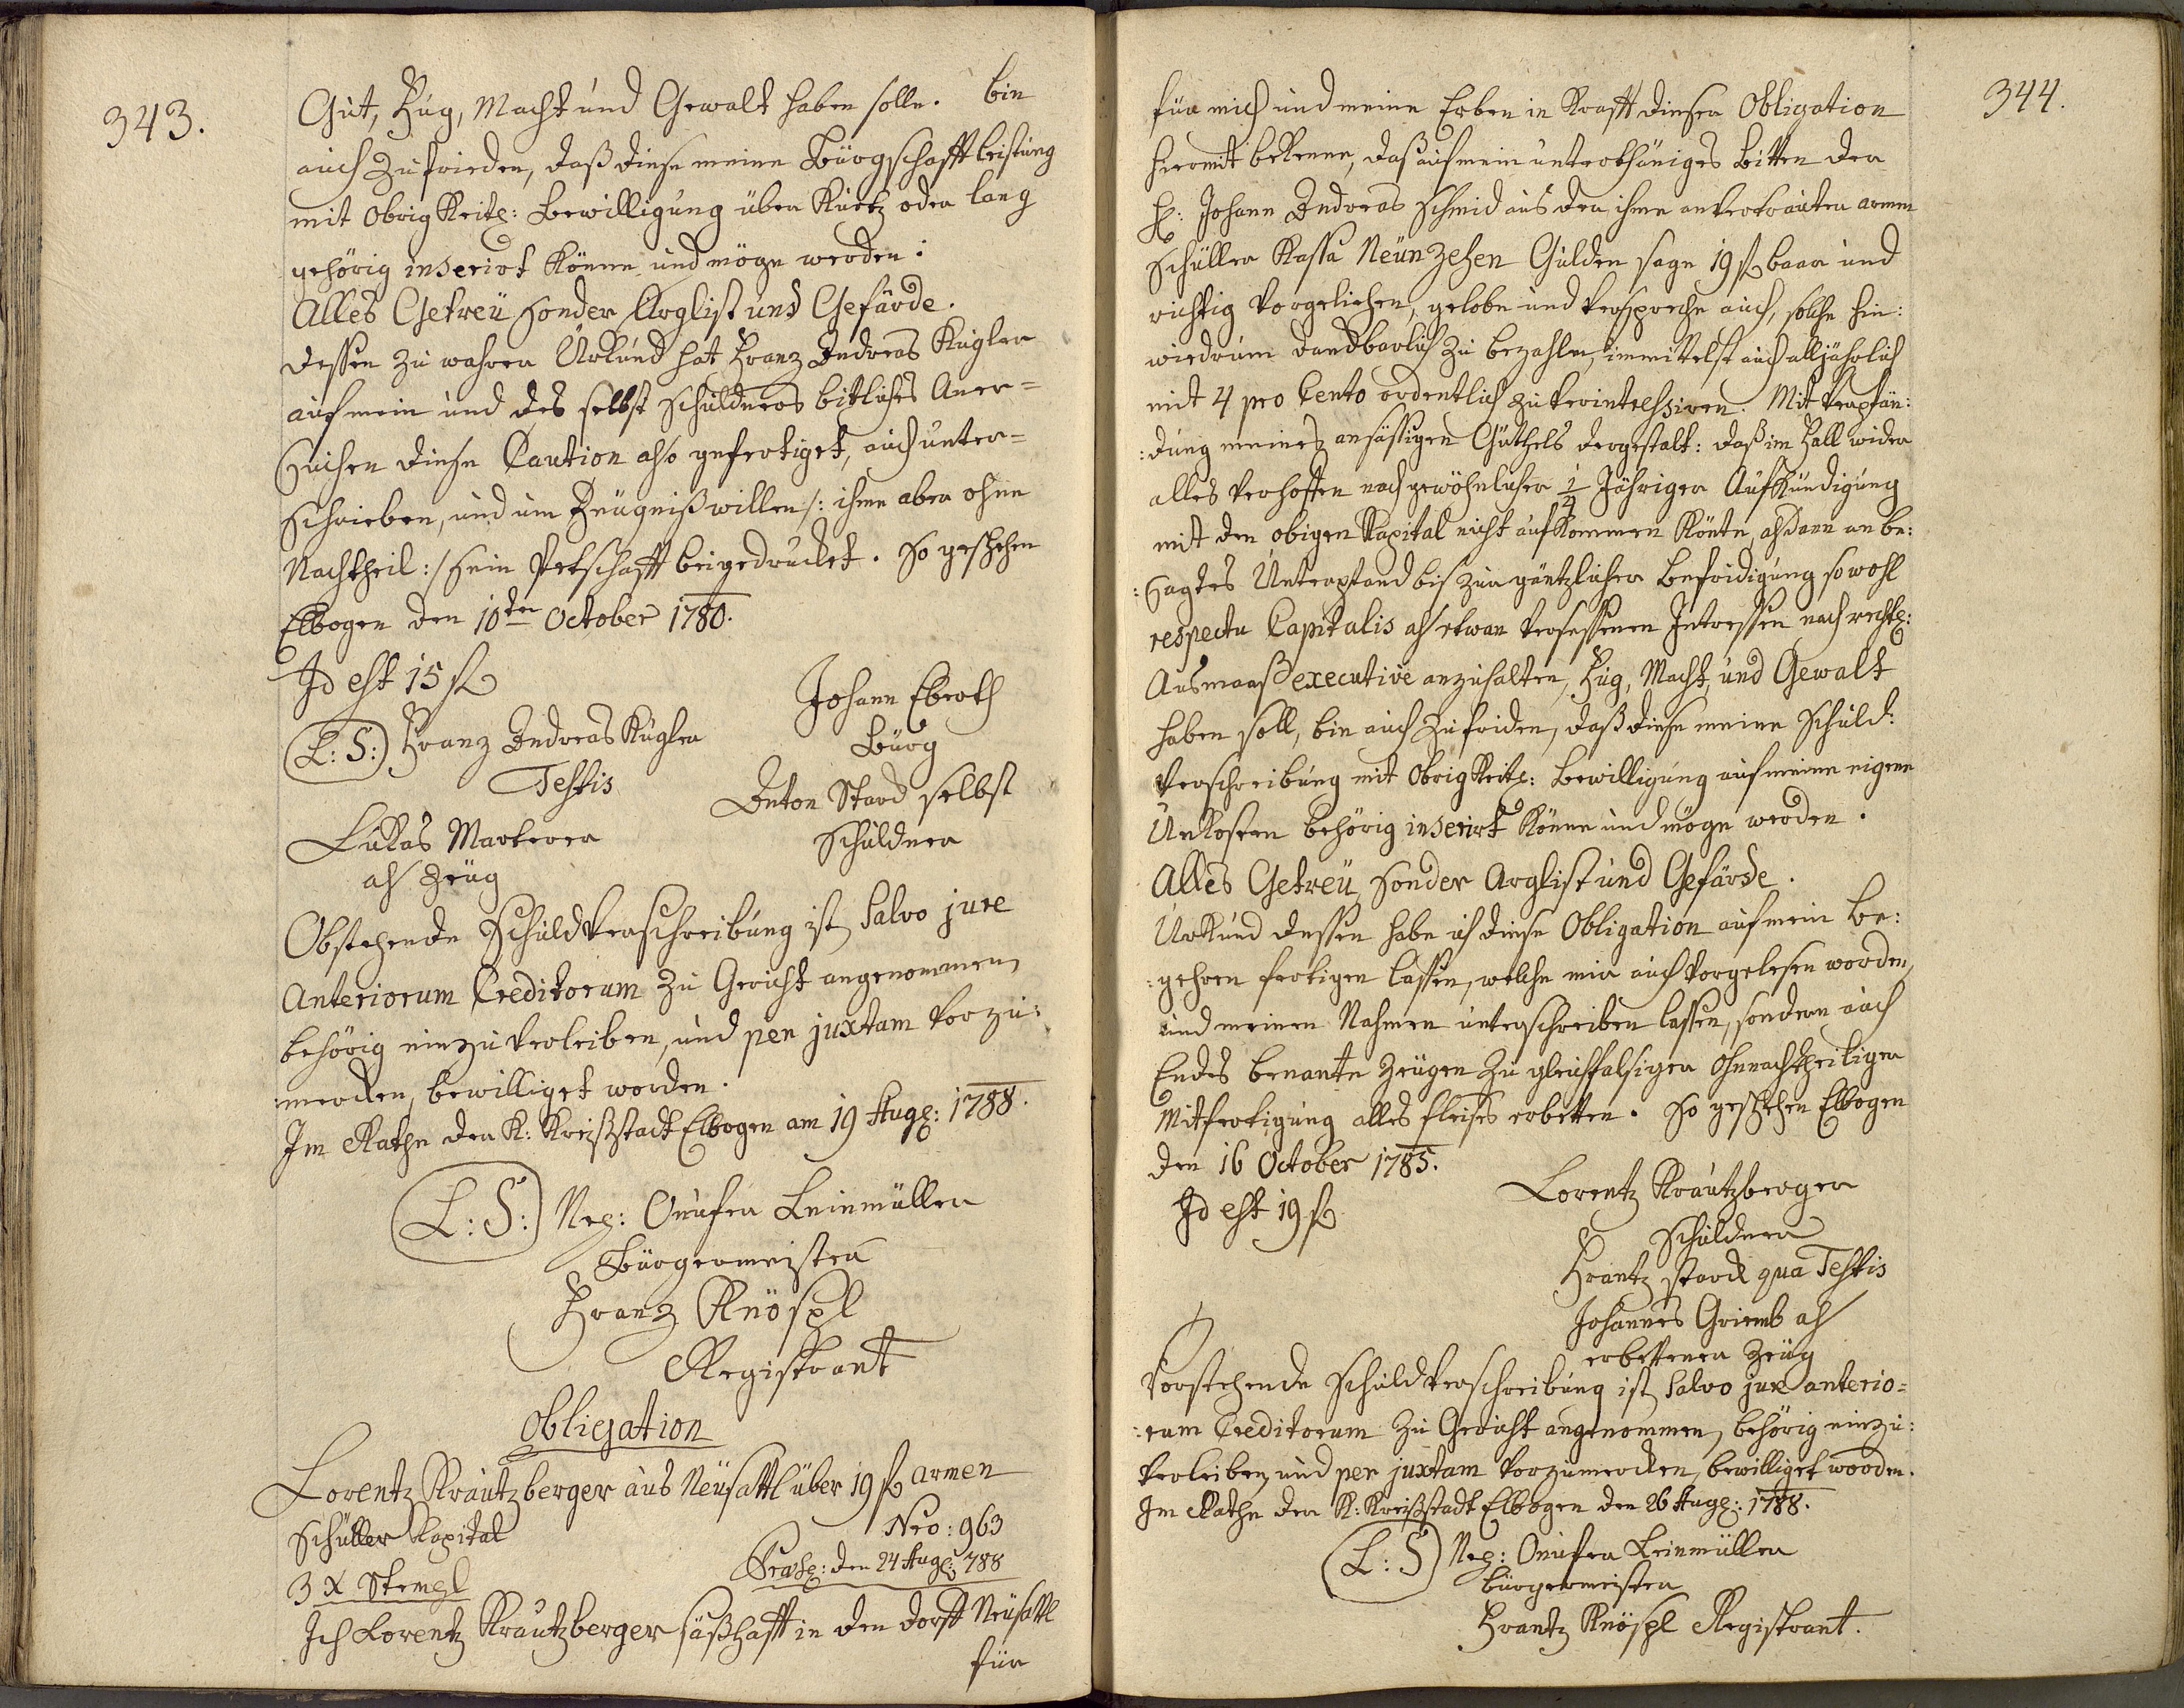 343.
Gut, Fug, Macht und Gewalt haben solle. bin
auch zufrieden, daß diese meine Bürgschafftleistung
mit Obrigkeitl: Bewilligung über Kurtz oder lang
gehörig inserirt könne und möge werden:
Alles Getreü sonder Arglist und Gefärde.
dessen zu wahrer Urkund hat Franz Andreas Kugler
auf mein und des selbst schuldners bitliches Aner=
suchen diese Caution also gefertiget, auch unter=
schrieben, und um Zeugniß willen /: ihme aber ohne
Nachtheil :/ sein Petschafft beigedrucket. So geschehen
Elbogen den 10ten October 1780.
Id est 15 fl
Johann Eberth
Bürg
L: S: Franz Andreas Kugler
Testis
Anton Stard selbst
Schuldner
Lukas Marterer
als Zeug
Obstehende Schuldverschreibung ist Salvo jure
Anteriorum Creditorum zu Gericht angenommen,
behörig einzuverleiben, und per juxtam vorzu:
:merken, bewilliget worden.
Im Rathe der K: Kreißstadt Elbogen am 19 Aug: 1788.
L: S: Neg: Onufer Leinmüller
Bürgermeister
Franz Knöspl
Registrant
Obligation
Lorentz Krautzberger aus Neüsattl über 19 fl armen
Schüller Kapital
Nro: 963
3 x Stempl
Praes: den 24 Aug: 788
Ich Lorentz Krautzberger säßhafft in den dorff Neüsattl
für
344.
für mich und meine Erben in Krafft dieser Obligation
hiermit bekenne, daß auf mein unterthäniges Bitten der
H: Johann Andreas Schmid aus der ihme anvertrauten armen
Schüller Kassa Neünzehen Gulden sage 19 fl baar und
richtig vorgeliehen, gelobe und verspreche auch, solche hin:
wiedrum dandbarlich zu bezahlen, immittelst auch alljährlich
mit 4 pro Cento ordentlich zu verintressiren. Mit Verpfän:
:dung meines ansässigen Güthels dergestalt: daß im Fall wider
alles verhoffen nach gewöhnlicher 1/4 Jähriger Aufkündigung
mit den obigen Kapital nicht aufkommen könte, alsdann an be:
:sagtes Unterpfand bis zur gäntzlicher Befridigung sowohl
respectu Capitalis als etwan versessenen Intressen nach rechtl:
Ausmaaß executivè anzuhalten, Fug, Macht, und Gewalt
haben soll, bin auch zufriden, daß diese meine Schuld:
verschreibung mit Obrigkeitl: Bewilligung auf meine eigene
Unkosten behörig inserirt könne und möge werden.
Alles Getreü, sonder Arglist und Gefärde.
Urkund dessen habe ich diese Obligation auf mein Be:
:gehren fertigen lassen, welche mir auch vorgelesen worden,
und meinen Nahmen unterschreiben lassen, sondern auch
Endes benante Zeugen zu gleichfalsiger Ohnnachtheiliger
Mitfertigung alles fleises erbetten. So geschehen Elbogen
den 16 October 1785.
Id est 19 fl
Lorentz Krautzberger
Schuldner
Frantz stark qua Testis
Johannes Griemb als
erbettener Zeug
Vorstehende Schuldverschreibung ist Salvo jure anterio=
:rum Creditorum zu Gericht angenommen, behörig einzu:
verleiben, und per juxtam vorzumerken, bewilliget worden.
Im Rathe der K: Kreißstadt Elbogen den 26 Aug: 1788.
L: S Neg: Onufer Leinmüller
bürgermeister
Frantz Knöspl Registrant.